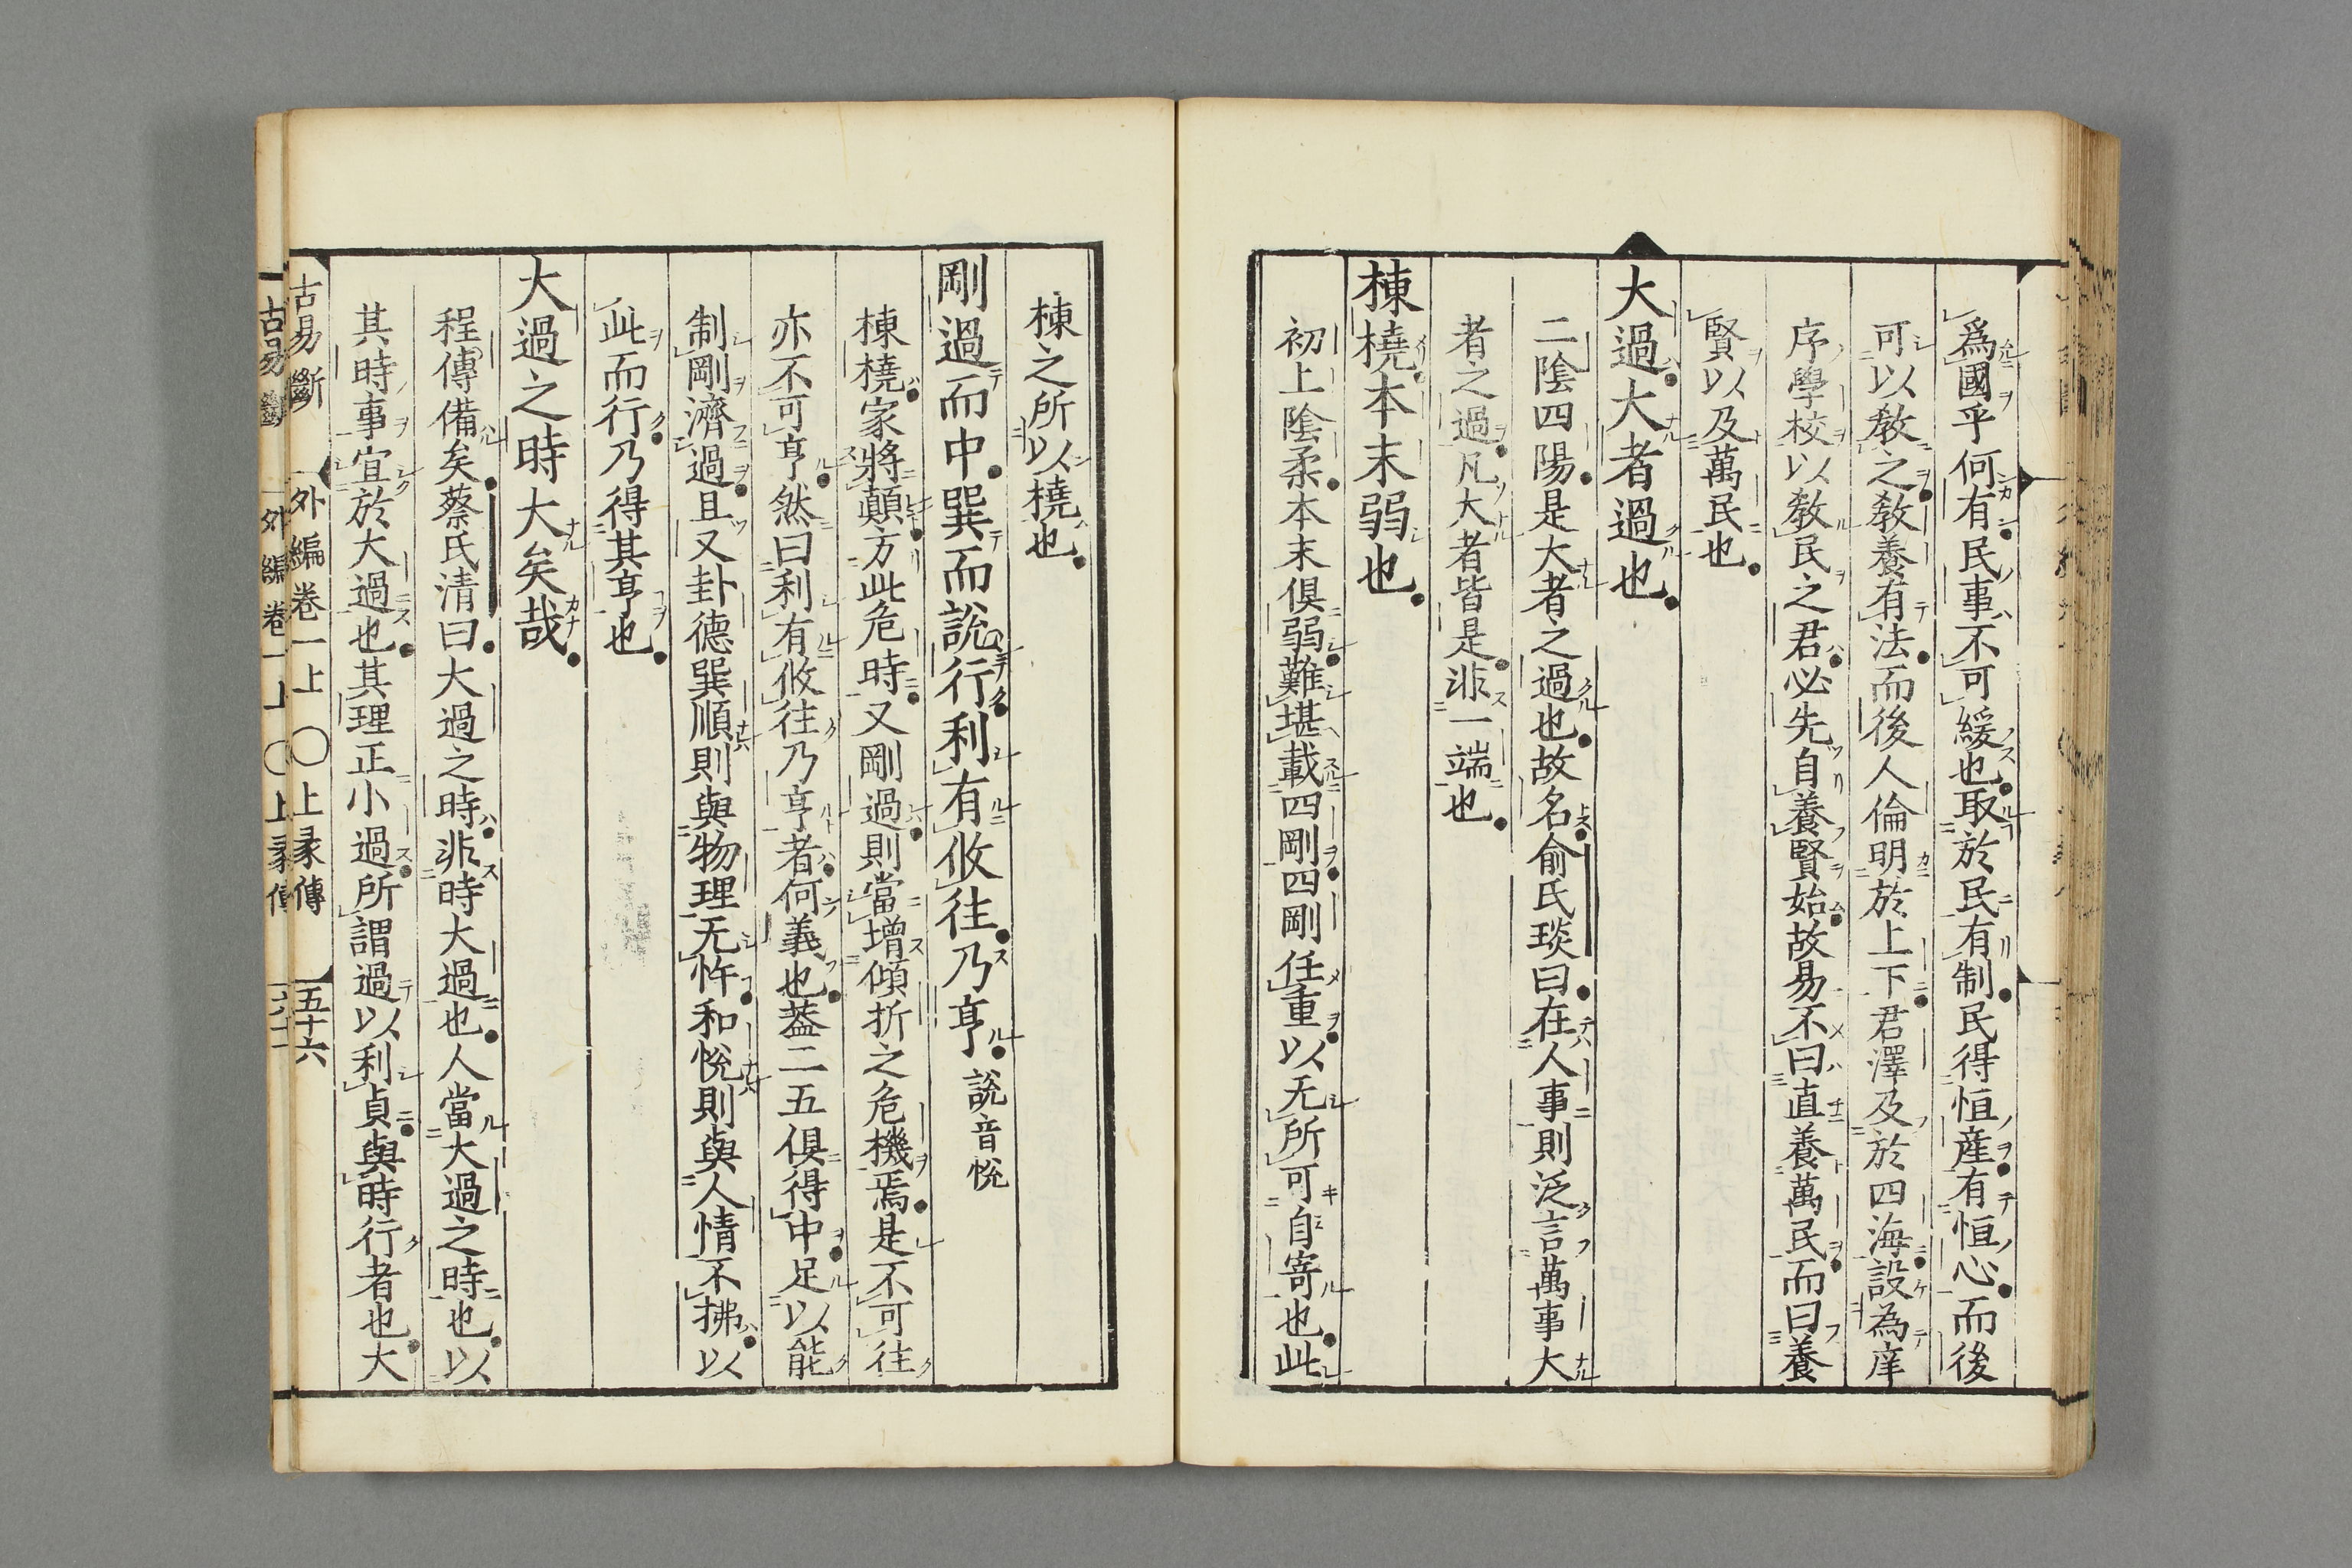 爲國乎何有民事不可緩也取於民有制民得恒産有恒心而後
可以敎之敎養有法而後人倫明於上下君澤及於四海設為庠
序學校以敎民之君必先自養賢始故易不曰直養萬民而曰養
賢以及萬民也
大過大者過也
二陰四陽是大者之過也故名俞氏琰曰在人事則泛言萬事大
者之過凡大者皆是非一端也
棟橈本末弱也
初上陰柔本末俱弱難堪載四剛四剛任重以无所可自寄也此
棟之所以橈也
剛過而中巽而說行利有攸往乃亨說音悅
棟橈家將顛方此危時又剛過則當增傾折之危機焉是不可往
亦不可亨然曰利有攸往乃亨者何義也蓋二五俱得中足以能
制剛濟過且又卦德巽順則與物理无忤和悅則與人情不拂以
此而行乃得其亨也
大過之時大矣哉
程傳備矣蔡氏清曰大過之時非時大過也人當大過之時也以
其時事宜於大過也其理正小過所謂過以利貞與時行者也大
古易斷 外編卷一上 〇上彖傳 五十六
古易斷 外編卷一上 〇上彖傳